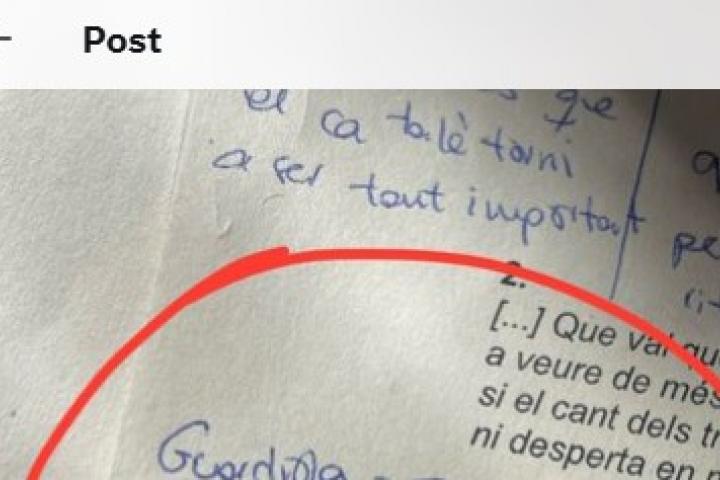 Post
que
el català torni
a ser tant important
2.
[...] Que val
a veure de més
si el cant dels
ni desperta en
Guardiola